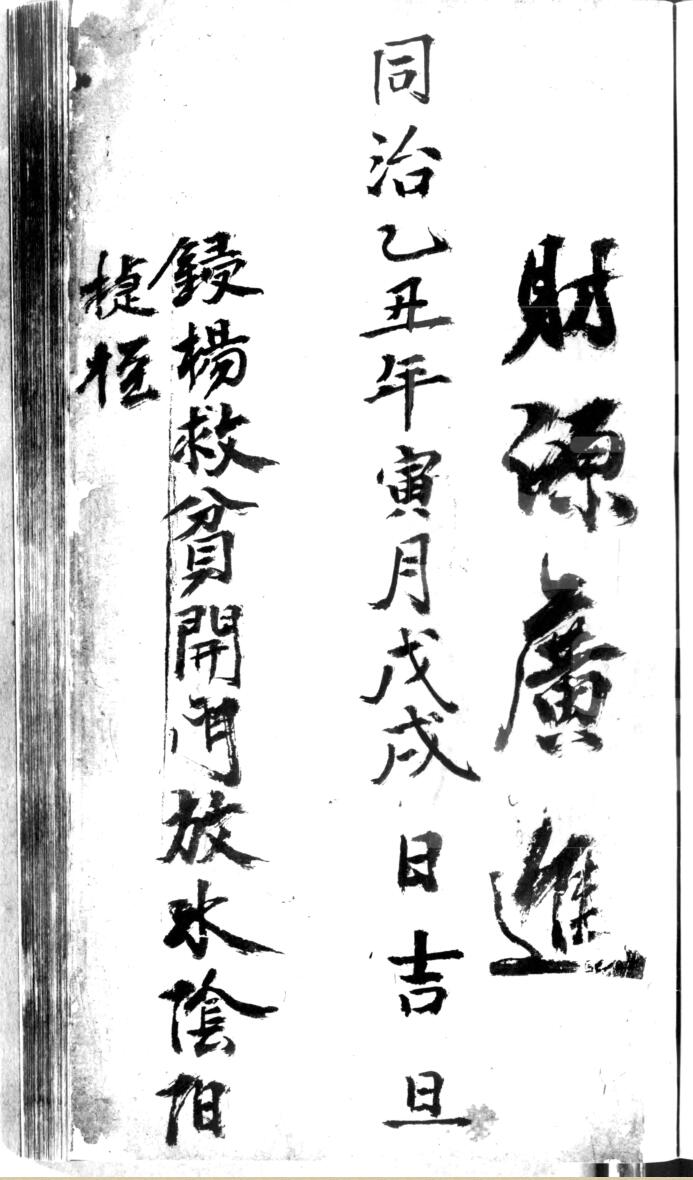 財源廣進
同治乙丑年寅月戊戌日吉旦
鋟楊救貧開門放水陰阳
捷徑